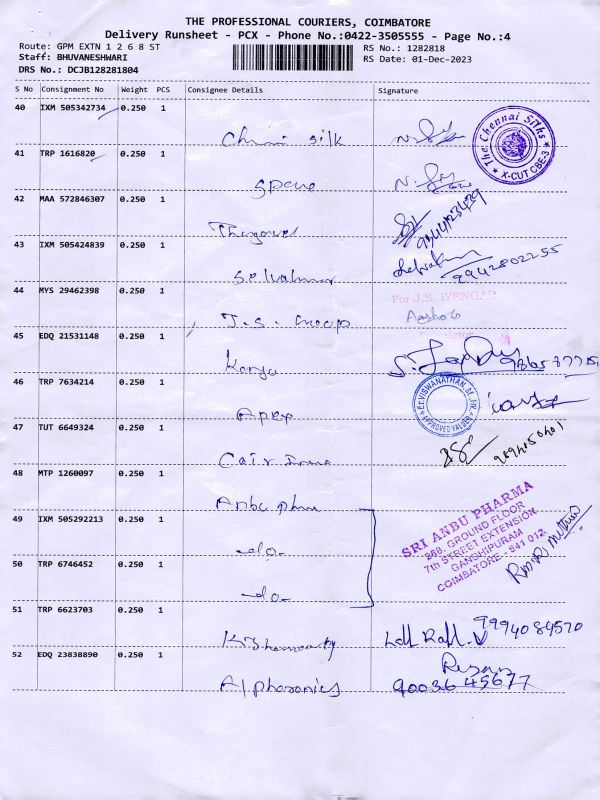 THE PROFESSIONAL COURIERS, COIMBATORE
Delivery Runsheet - PCX - Phone No.:0422-3505555 - Page No.:4
Route: GPM EXTN 1 2 6 8 ST RS No.: 1282818
Staff: BHUVANESHWARI RS Date: 01-Dec-2023
DRS No.: DCJB128281804
S No Consignment No Weight PCS Consignee Details Signature
40 IXM 505342734 0.250 1
silk
The Chennai Silks
X-CUT CBE-3
41 TRP 1616820 0.250 1
42 MAA 572846307 0.250 1
43 IXM 505424839 0.250 1
9942802255
44 MYS 29462398 0.250 1
For J.S. IYENGAR
J.S.
45 EDQ 21531148 0.250 1
46 TRP 7634214 0.250 1
APPROVED VALUER
Apex
47 TUT 6649324 0.250 1
48 MTP 1260097 0.250 1
Anbu
49 IXM 505292213 0.250 1
SRI ANBU PHARMA
268, GROUND FLOOR
7th STREET EXTENSION
GANDHIPURAM
COIMBATORE - 641 012.
-do-
50 TRP 6746452 0.250 1
-do-
51 TRP 6623703 0.250 1
9994084570
52 EDQ 23838890 0.250 1
Alphasonics 90036 45677